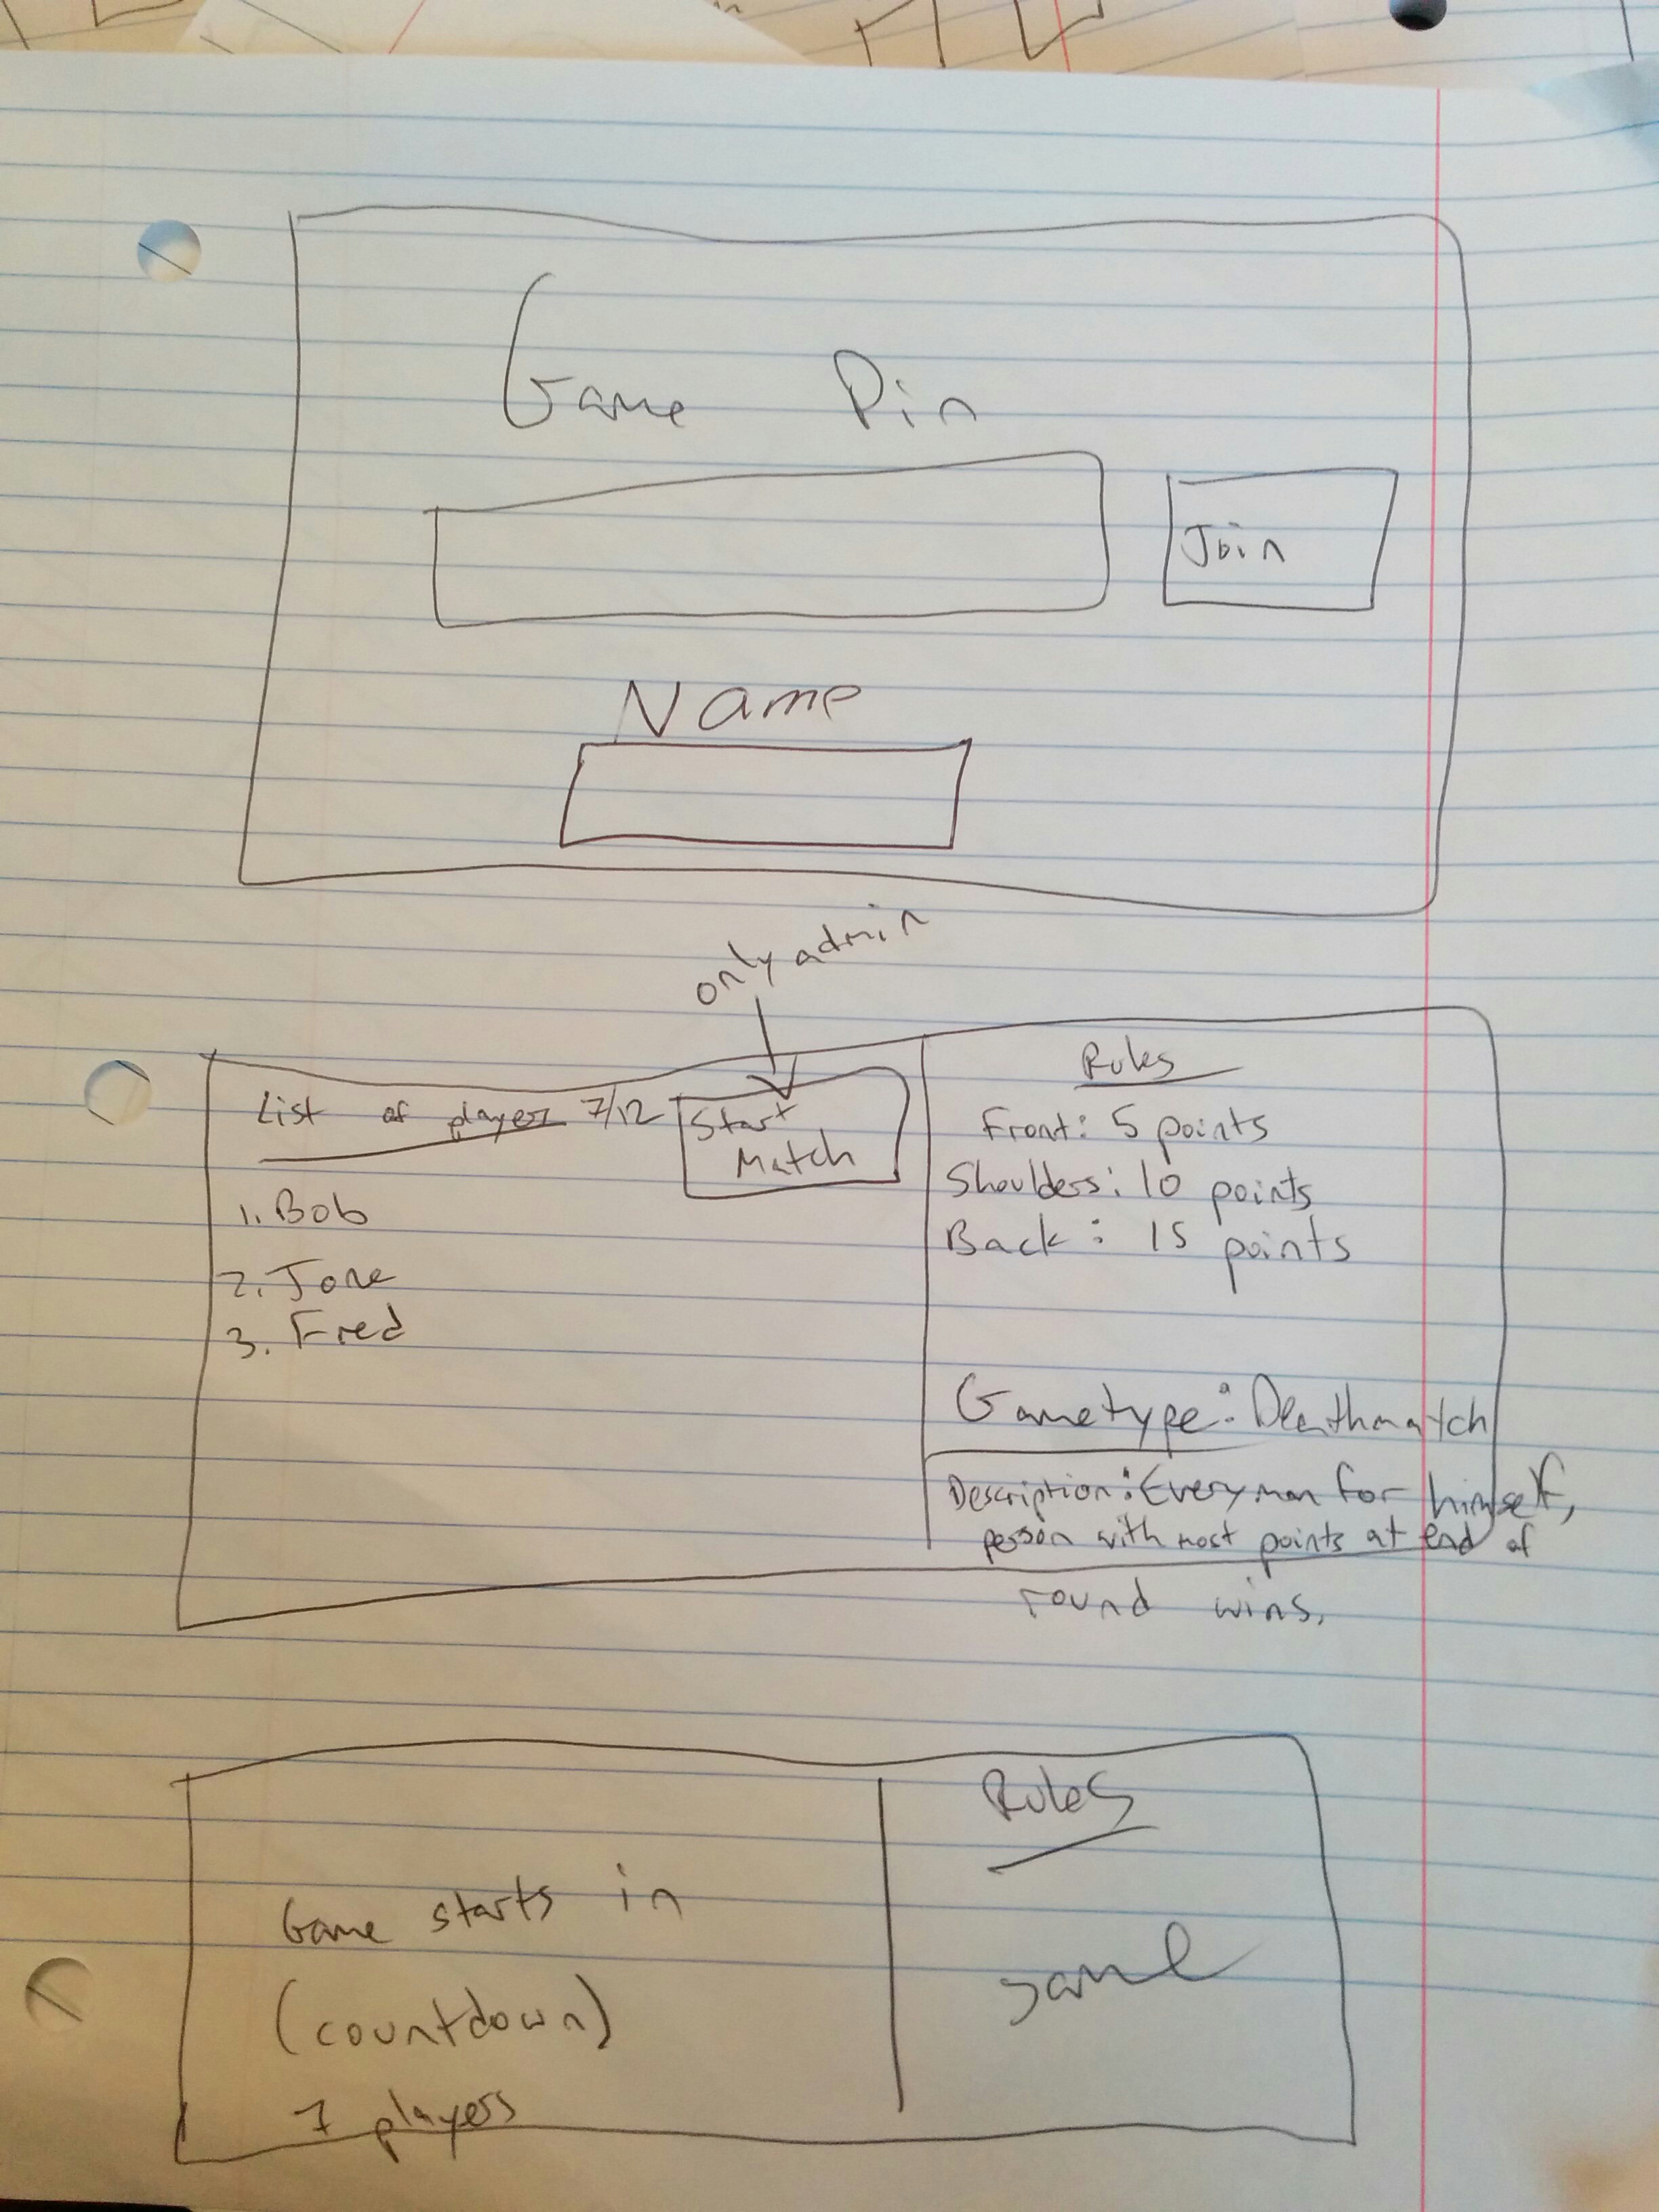 Game Pin
Join
Name
only admin
List of players 7/12
Start
Match
1. Bob
2. Jone
3. Fred
Rules
Front: 5 points
Shoulders: 10 points
Back: 15 points
Gametype: Deathmatch
Description: Every man for himself,
person with most points at end of
round wins.
Game starts in
(countdown)
7 players
Rules
same